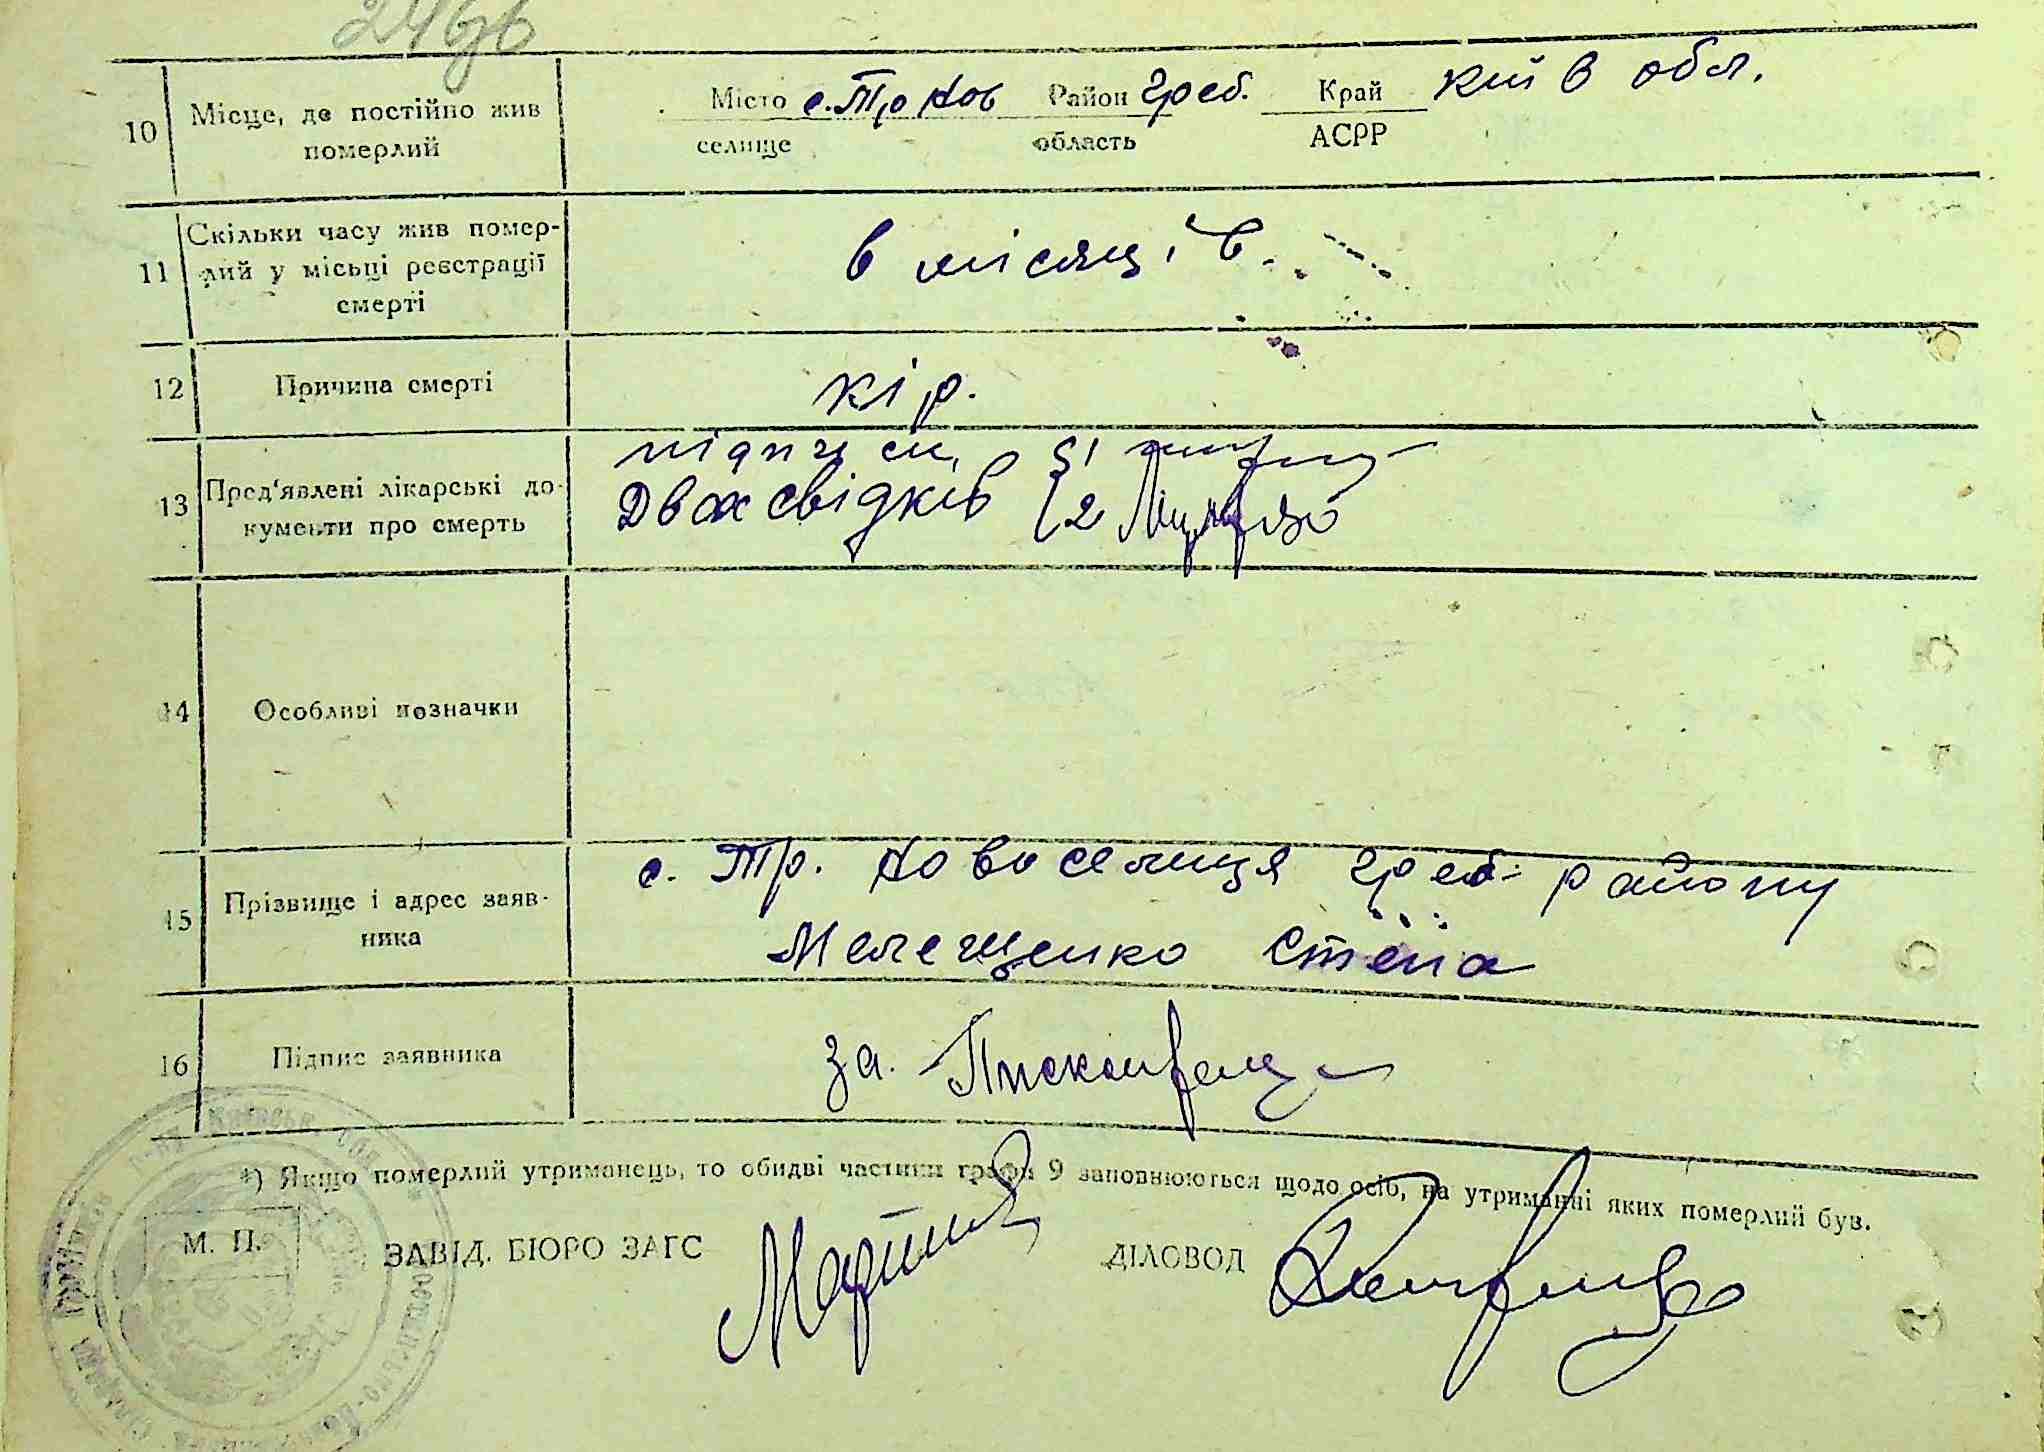 10 Місце, де постійно жив померлий
Місто с. Тр. Нов Район Греб. Край Київ обл.
селище область АСРР
11 Скільки часу жив помер-
лий у місьці реєстрації
смерті
6 місяців.
12 Причина смерті
кір.
13 Пред'явлені лікарські до-
кументи про смерть
підписи 1
Двох свідків 2
14 Особливі позначки
15 Прізвище і адрес заяв-
ника
с. Тр. Новоселиця Греб. району
Мелещенко Степа
16 Підпис заявника
за.
*) Якщо померлий утриманець, то обидві частини графи 9 заповнюються щодо осіб, на утриманні яких померлий був.
М. П. ЗАВІД. БЮРО ЗАГС ДІЛОВОД